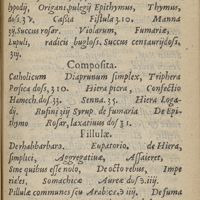 lypodij, Origani, pulegij Epithymus, Thymus,
dos. 3 v. Cassia Fistula 3 10. Manna
Zij, Succus rosar. Violarum, Fumariæ,
Lupuli, radicis buglos. Succus centaurij dos.
3ij.
Composita.
Catholicum Diaprunum simplex, Triphera
Persica dos, 3 10. Hiera picra, Confectio
Hamech. dos 33. Senna. 35. Hiera Loga-
dij. Rufini Zij Syrup. de fumaria De Epi-
thymo Rosar, laxativus dos 3 1.
Fillulæ.
De rhabarbara. Eupatorio, de Hiera,
simplici, Aggregativæ, Assaieret,
Sine quibus esse nolo, De octo rebus, Impe
riales, Somachicæ Aureæ dos. iiij.
Pillulæ communes seu Arabicæ, iiij, De fuma